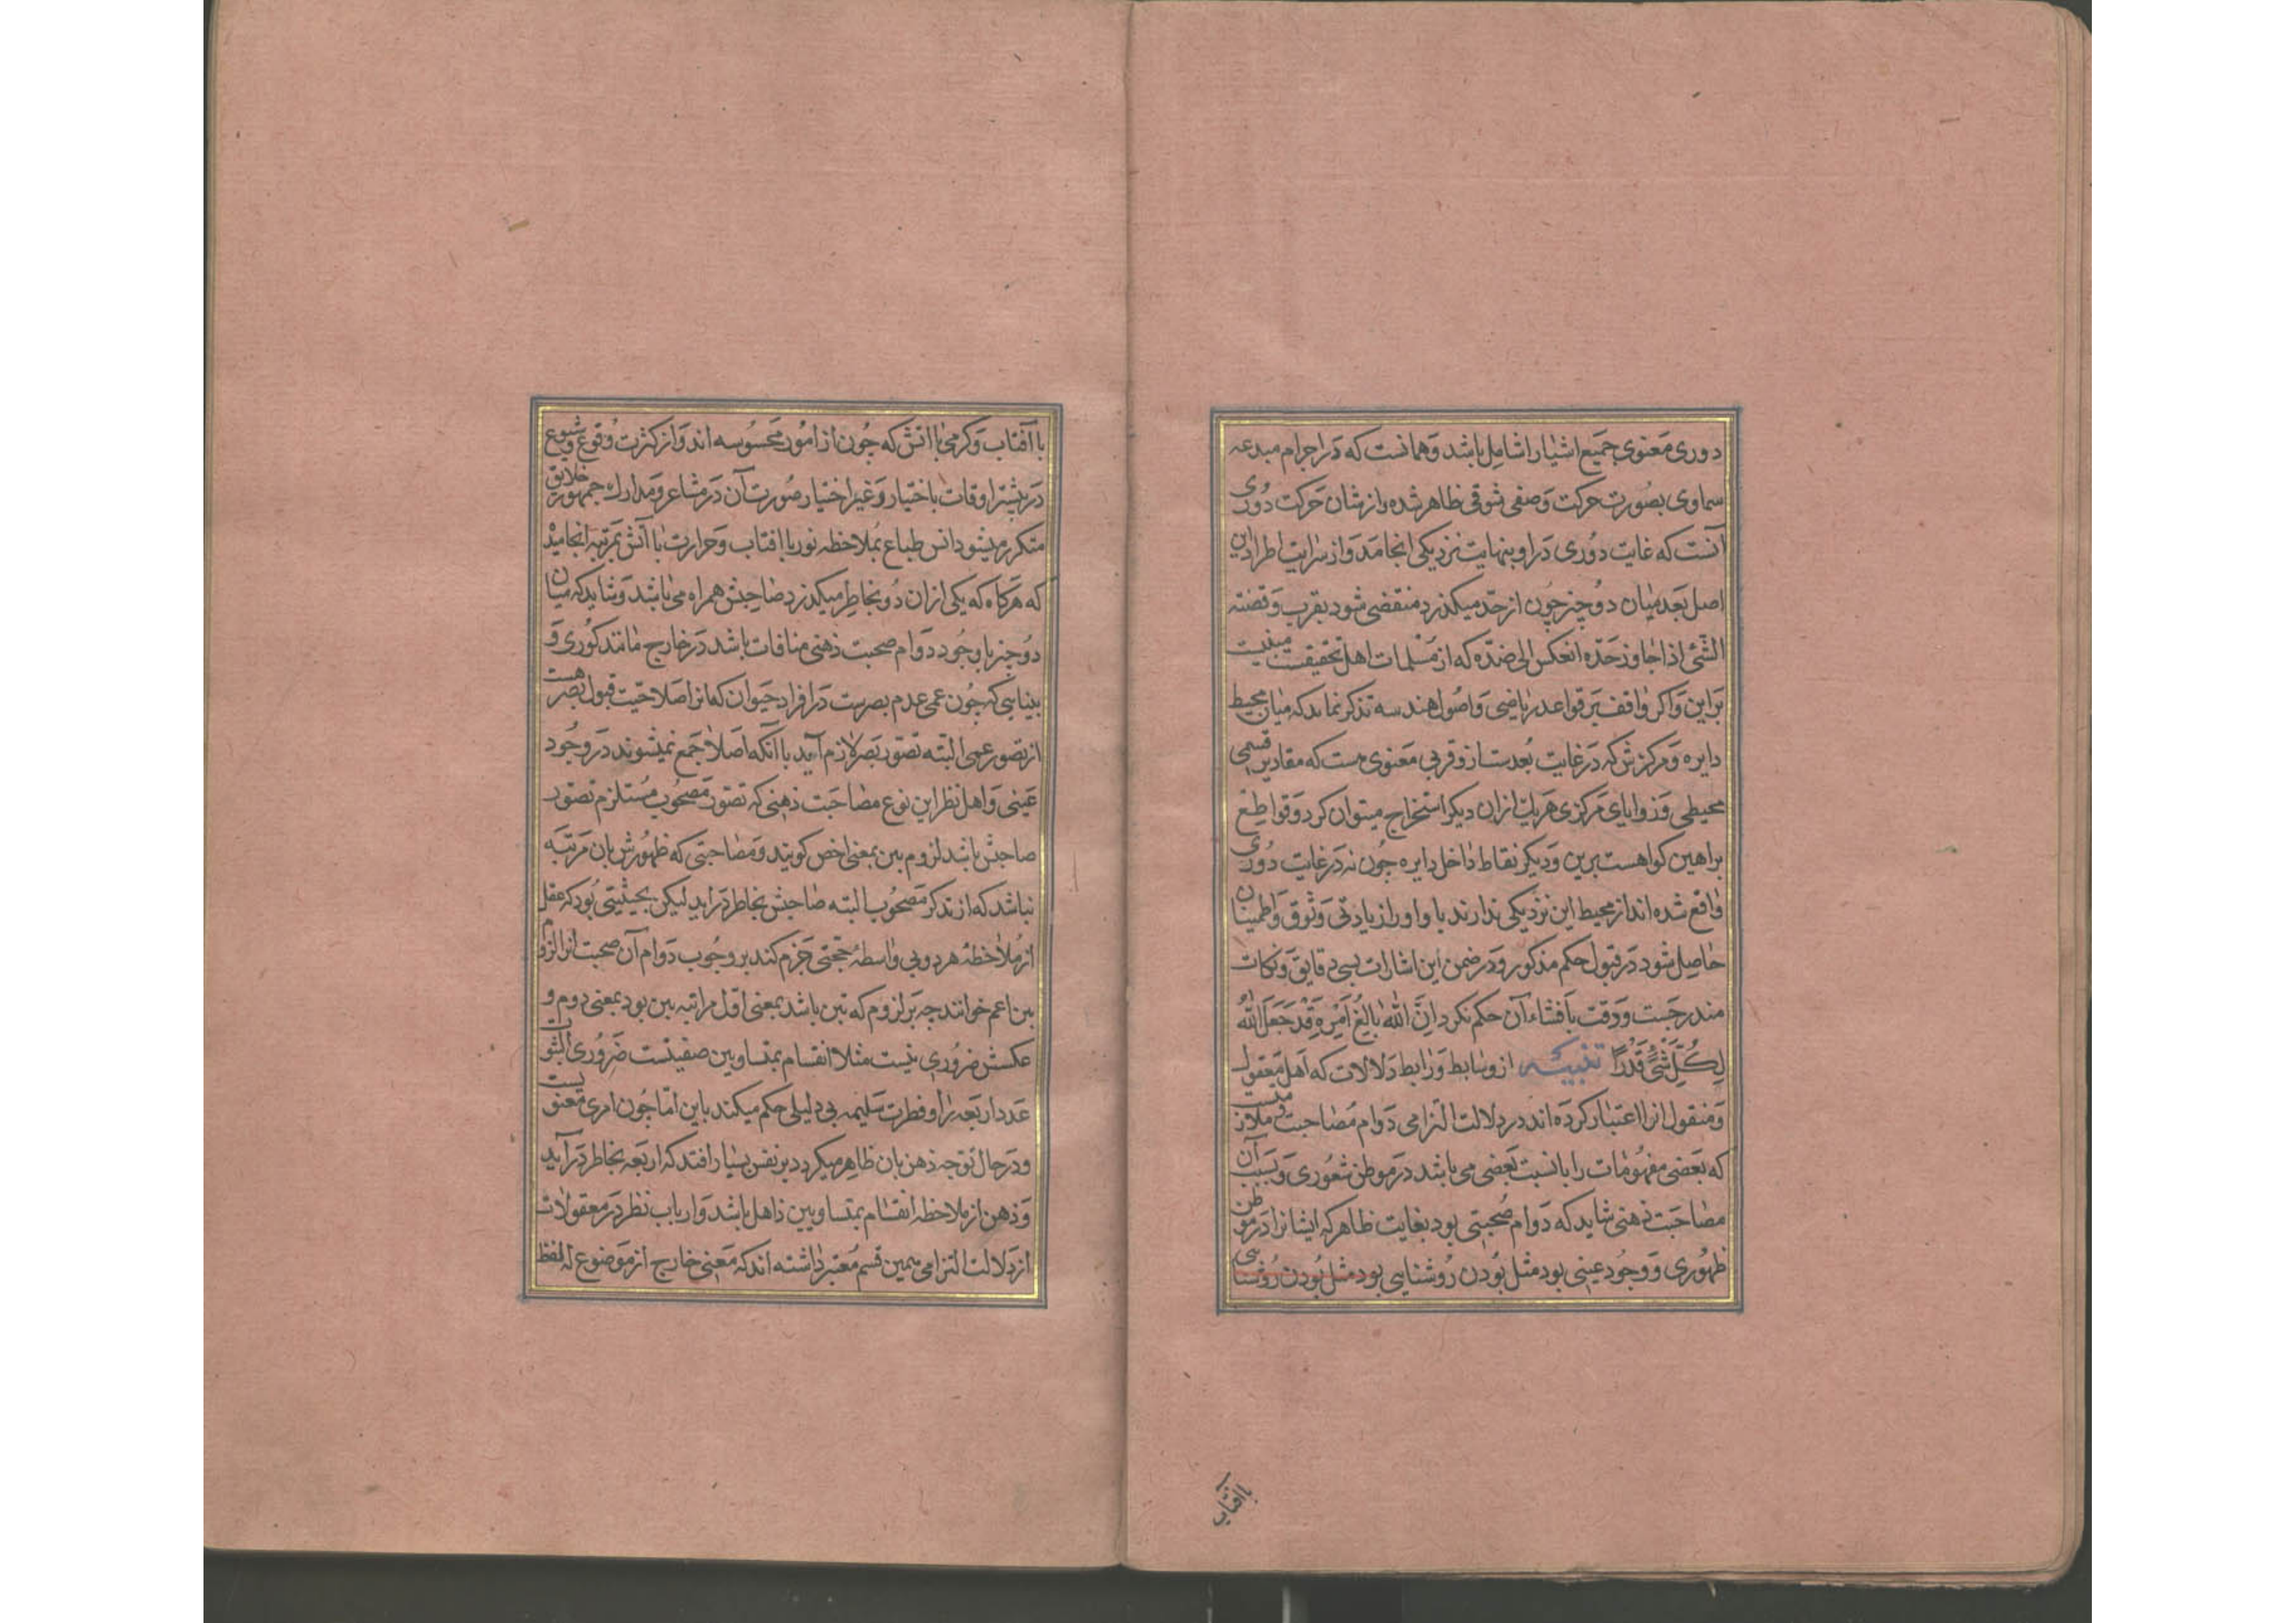 دوری معنوی جمیع اشیا را شامل باشد و همانست که در اجرام مبدعه
سماوی بصورت حرکت وضعی شوقی ظاهر شده و از شان حرکت دوری
آنست که غایت دوری در او بنهایت نزدیکی انجامد و از سرایت اطراد این
اصل بعد میان دو چیز چون از حد میکذرد منقضی شود بقرب و قضیه
الشّئ اذا جاوز حدّه انعکس الی ضدّه که از مسلمات اهل تحقیقست مبنیست
بر این و اکر واقف بر قواعد ریاضی و اصول هندسه تذکر نماید که میان محیط
دایره و مرکزش که در غایت بعدست ازو قربی معنوی هست که مقادیر قسی
محیطی و زوایای مرکزی هر یک از ان دیکر استخراج میتوان کرد و قواطع
براهین کواهست برین و دیکر نقاط داخل دایره چون نه در غایت دوری
واقع شده اند از محیط این نزدیکی ندارند با و او را زیادتی وثوق و اطمینان
حاصل شود در قبول حکم مذکور و در ضمن این اشارات بسی دقایق و نکات
مندرجست و وقت بافشاء آن حکم نکرد اِنَّ اللّٰهَ بَالِغُ اَمْرِهِ قَدْ جَعَلَ اللّٰهُ
لِکُلِّ شَیْءٍ قَدْرًا تنبیه از وسایط و روابط دلالات که اهل معقول
و منقول انرا اعتبار کرده اند در دلالت التزامی دوام مصاحبت و ملازمتیست
که بعضی مفهومات را بانسبت بعضی می باشد در موطن شعوری و سبب آن
مصاحبت ذهنی شاید که دوام صحبتی بود بغایت ظاهر که ایشانرا در موطن
ظهوری و وجود عینی بود مثل بودن روشنایی بود مثل بودن روشنایی
با آفتاب
با آفتاب و کرمی با اتش که چون از امور محسوسه اند و از کثرت وقوع و شیوع
در بیشتر اوقات باختیار و غیر اختیار صورت آن در مشاعر و مدارک جمهور خلایق
متکرر میشود انس طباع بملاحظه نور با افتاب و حرارت با آتش بمرتبه انجامید
که هرکاه که یکی از ان دو بخاطر میکذرد صاحبش همراه می باشد و شاید که میان
دو چیز با وجود دوام صحبت ذهنی منافات باشد در خارج مانند کوری و
بینایی که چون عمی عدم بصرست در افراد حیوان که انرا صلاحیت قبول بصر هست
از تصور عمی البته تصور بصر لازم آید با آنکه اصلا جمع نمیشوند در وجود
عینی و اهل نظر این نوع مصاحبت ذهنی که تصور مصحوب مستلزم تصور
صاحبش باشد لزوم بین بمعنی اخص کویند و مصاحبتی که ظهورش بان مرتبه
نباشد که از تذکر مصحوب البته صاحبش بخاطر دراید لیکن بحیثیتی بود که عقل
از ملاحظه هر دو بی واسطه حجتی جزم کند بر وجوب دوام آن صحبت انرا لزوم
بین اعم خوانند چه هر لزوم که بین باشد بمعنی اول مراتبه بین بود بمعنی دوم و
عکسش ضروری نیست مثلا انقسام بمتساویین صفتیست ضروری الثبوت
عدد اربعه را و فطرت سلیمه بی دلیلی حکم میکند باین اما چون امری معنویست
و در حال توجه ذهن بان ظاهر میکردد بر نفس بسیار افتد که اربعه بخاطر درآید
و ذهن از ملاحظه انقسام بمتساویین ذاهل باشد و ارباب نظر در معقولات
از دلالت التزامی همین قسم معتبر داشته اند که معنی خارج از موضوع له لفظ